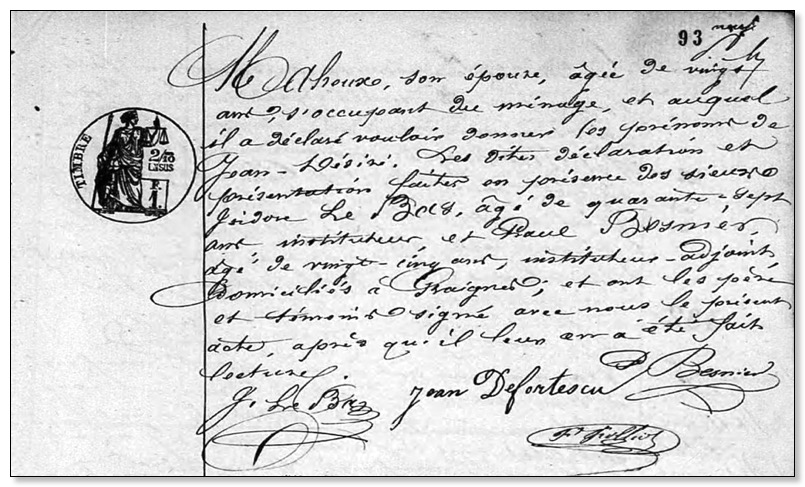 93
Mahouxe, son épouse, âgée de vingt
ans, s'occupant du ménage, et auquel
il a déclaré vouloir donner les prénoms de
Jean-Désiré. Les dites déclaration et
présentation faites en présence des sieurs
Isidore Le Bas, âgé de quarante-sept
ans instituteur, et Paul Besnier,
âgé de vingt-cinq ans, instituteur-adjoint
domiciliés à Graignes; et ont les père
et témoins signé avec nous le présent
acte, après qu'il leur en a été fait
lecture.
P Besnier
I. Le Bas
Jean Defortescu
TIMBRE
2/10
EN SUS
F.
1.